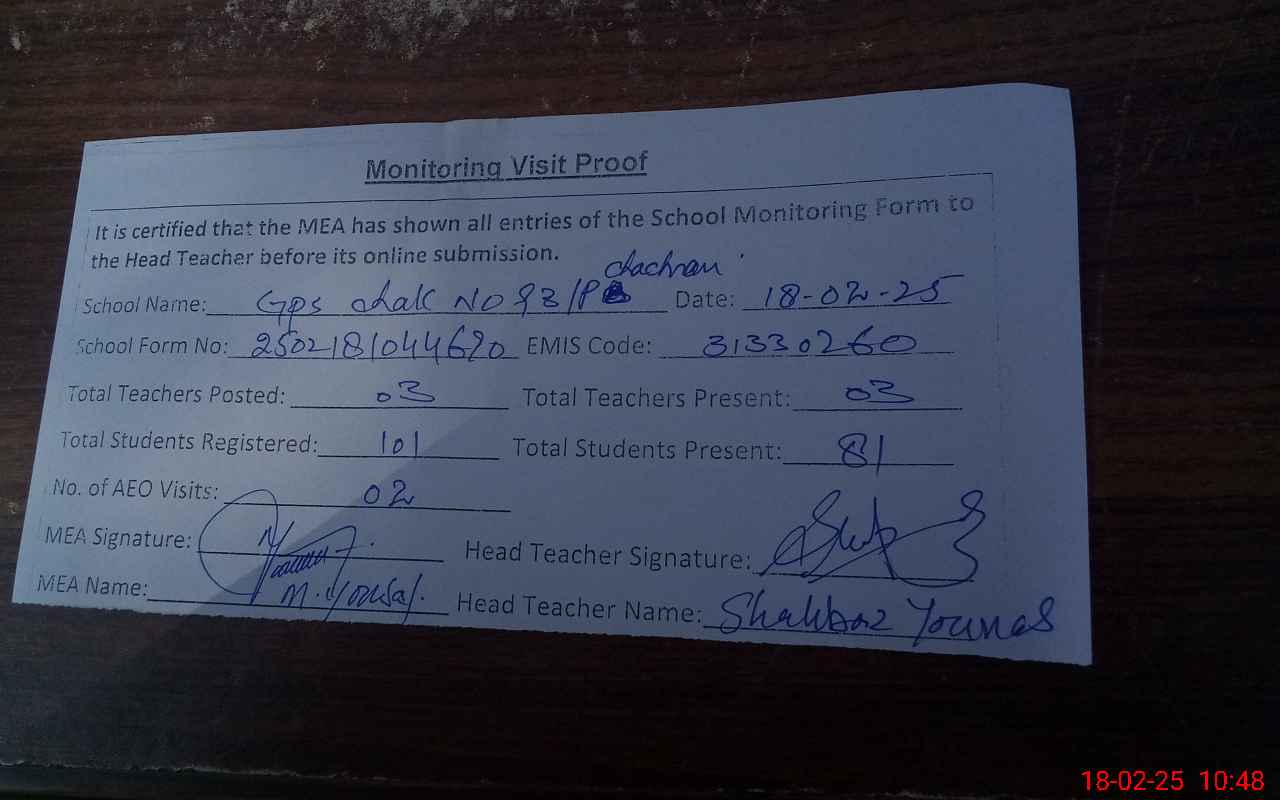 Monitoring Visit Proof
It is certified that the MEA has shown all entries of the School Monitoring Form to
the Head Teacher before its online submission.
chachran
School Name: Gps chak No 93/P Date: 18-02-25
School Form No: 2502181044620 EMIS Code: 31330260
Total Teachers Posted: 03 Total Teachers Present: 03
Total Students Registered: 101 Total Students Present: 81
No. of AEO Visits: 02
MEA Signature: Head Teacher Signature:
MEA Name: M. Yousaf. Head Teacher Name: Shahbaz Younas
18-02-25 10:48